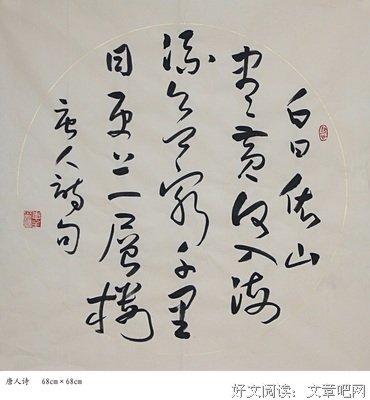 白日依山
盡黄河入海
流欲窮千里
目更上一層樓
唐人詩句
唐人诗 68cm×68cm
好文阅读：文章吧网